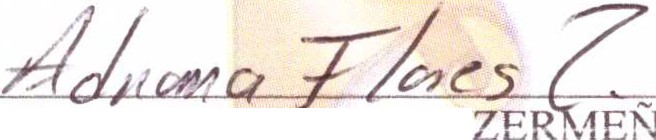 Adriana Flores Z.
ZERMEÑ